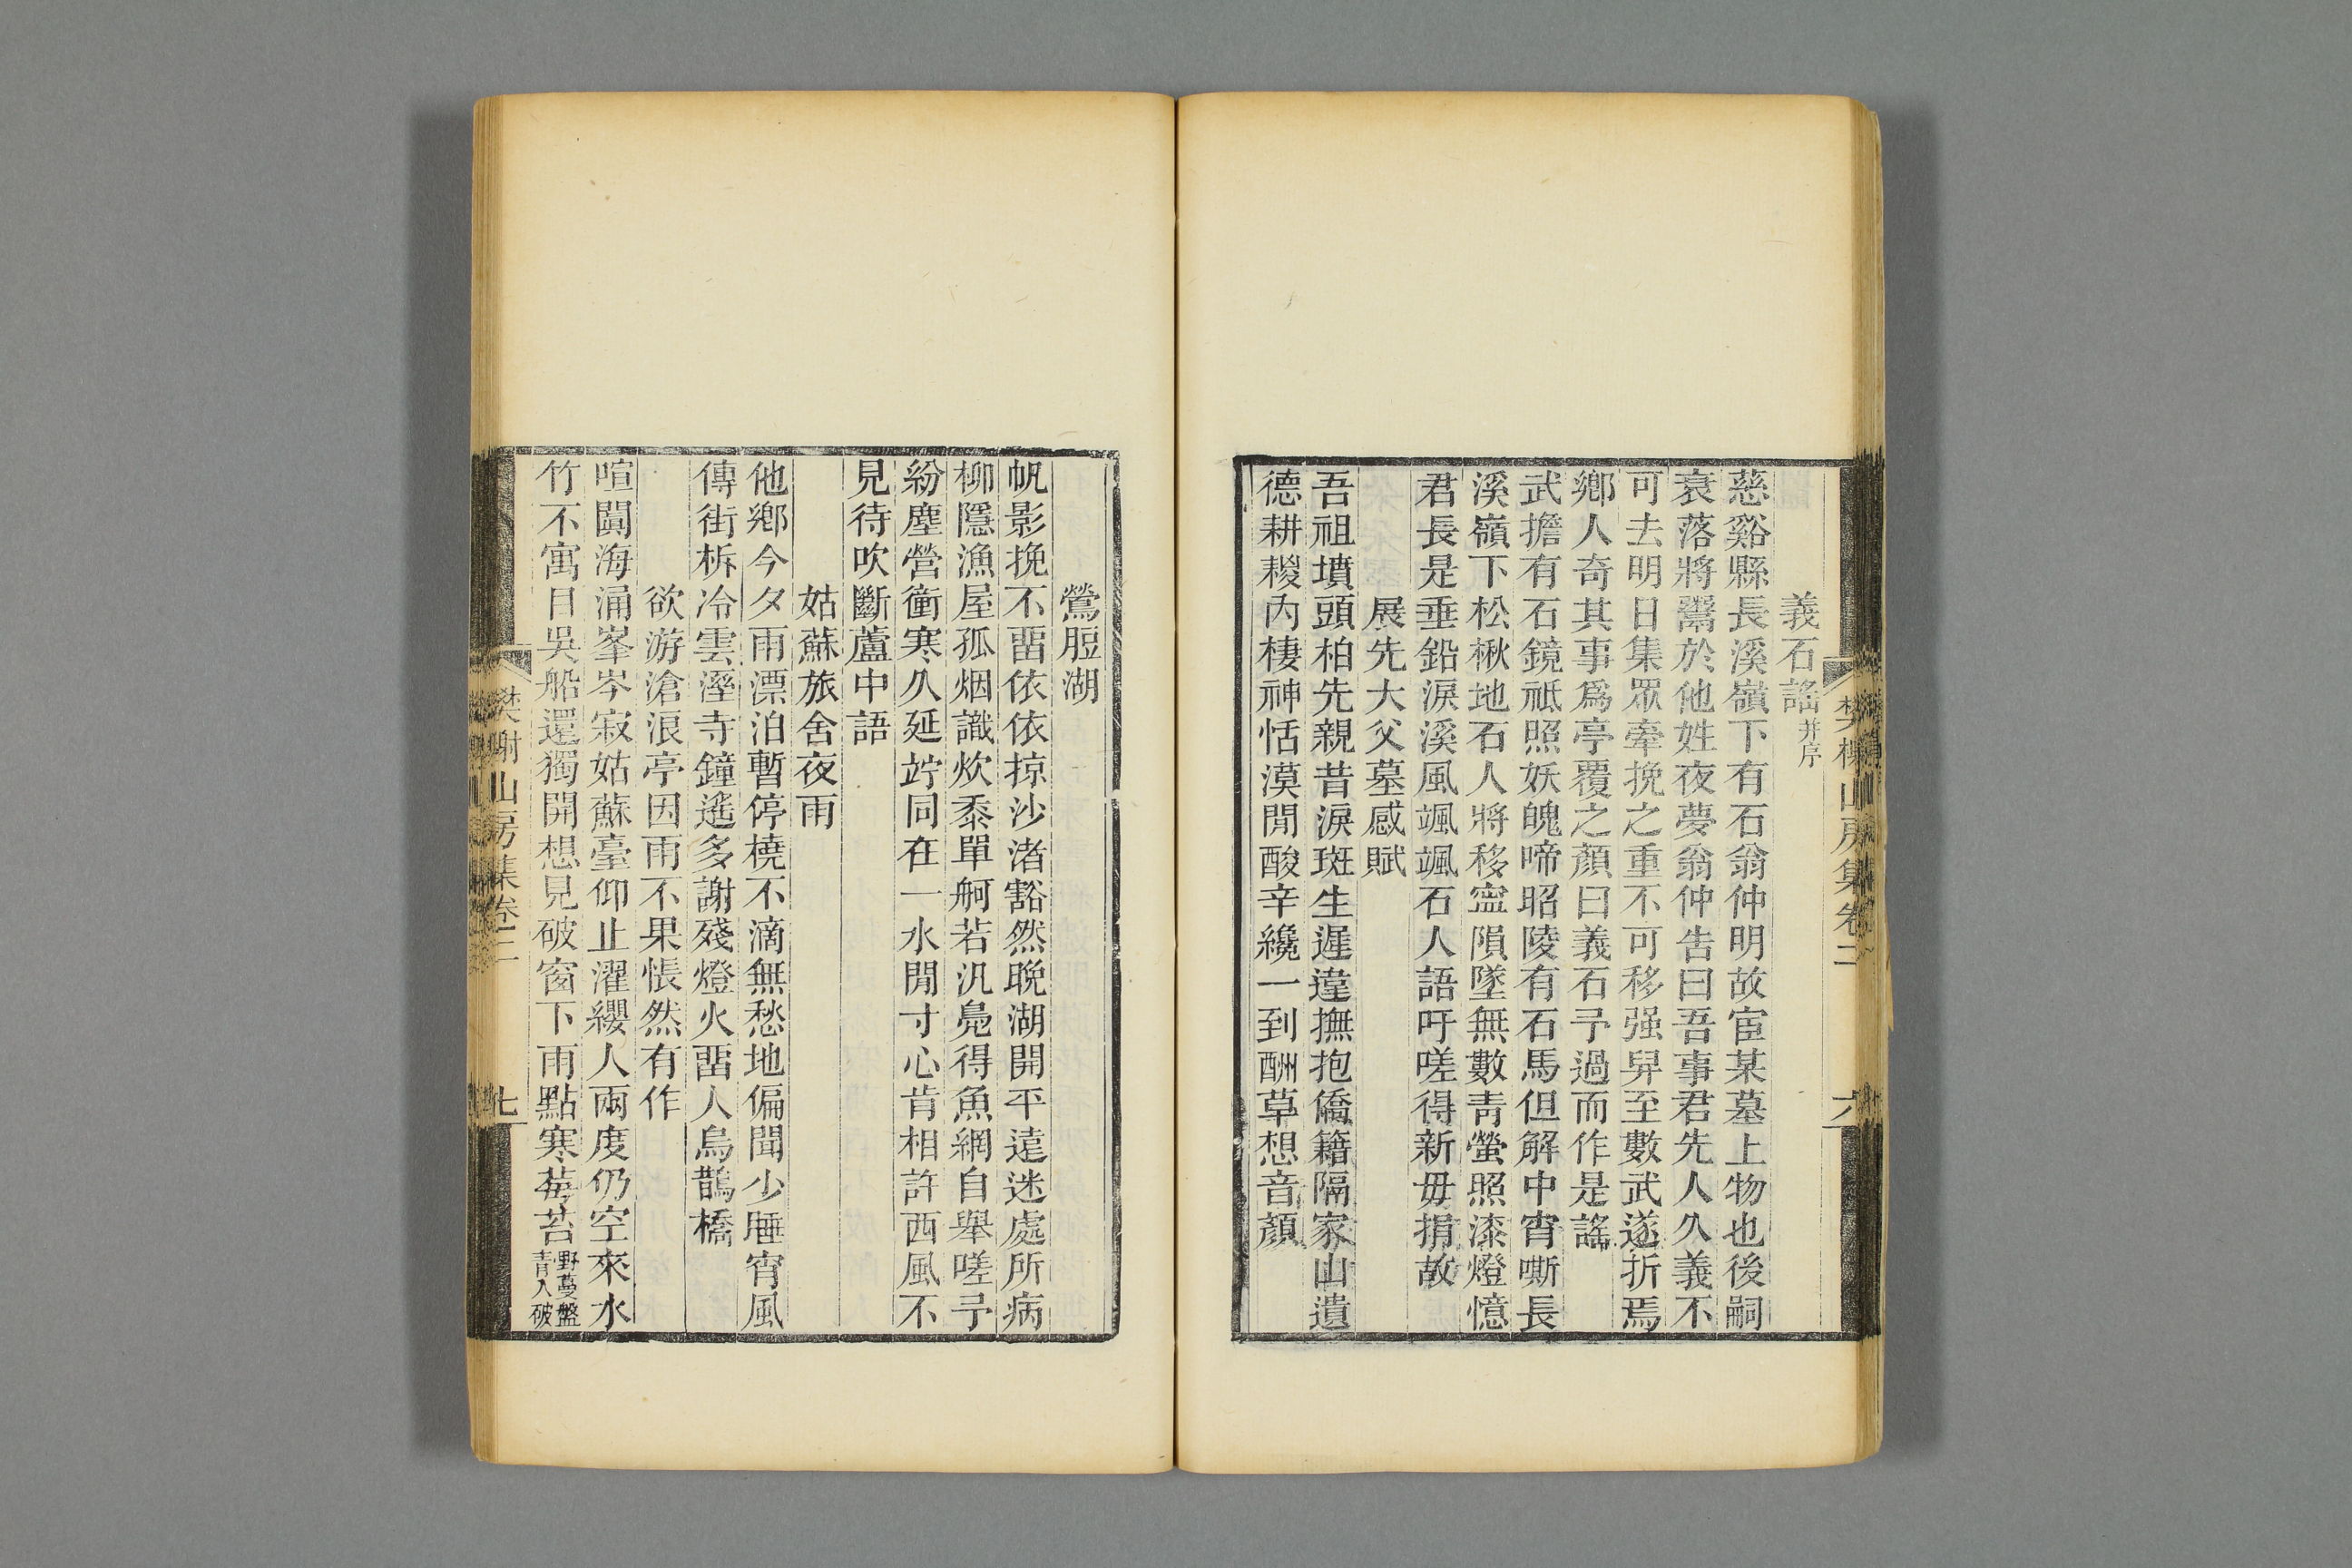 義石謠并序
慈谿縣長溪嶺下有石翁仲明故宦某墓上物也後嗣
衰落將鬻於他姓夜夢翁仲告曰吾事君先人久義不
可去明日集眾牽挽之重不可移强舁至數武遂折焉
鄉人奇其事爲亭覆之顏曰義石予過而作是謠
武擔有石鏡祗照妖魄啼昭陵有石馬但解中宵嘶長
溪嶺下松楸地石人將移寍隕墜無數青螢照漆燈憶
君長是垂鉛淚溪風颯颯石人語吁嗟得新毋捐故
展先大父墓感賦
吾祖墳頭柏先親昔淚斑生遲違撫抱僑籍隔家山遺
德耕耰內棲神恬漠閒酸辛纔一到酬草想音顏
樊榭山房集卷二
六
鶯脰湖
帆影挽不畱依依掠沙渚豁然晚湖開平遠迷處所病
柳隱漁屋孤烟識炊黍單舸若汎鳧得魚網自舉嗟予
紛塵營衝寒久延竚同在一水閒寸心肯相許西風不
見待吹斷蘆中語
姑蘇旅舍夜雨
他鄉今夕雨漂泊暫停橈不滴無愁地偏聞少睡宵風
傳街柝冷雲溼寺鐘遙多謝殘燈火畱人烏鵲橋
欲游滄浪亭因雨不果悵然有作
喧闐海涌峯岑寂姑蘇臺仰止濯纓人兩度仍空來水
竹不寓目吳船還獨開想見破窗下雨點寒莓苔野蔓盤
青入破
樊榭山房集卷二
七